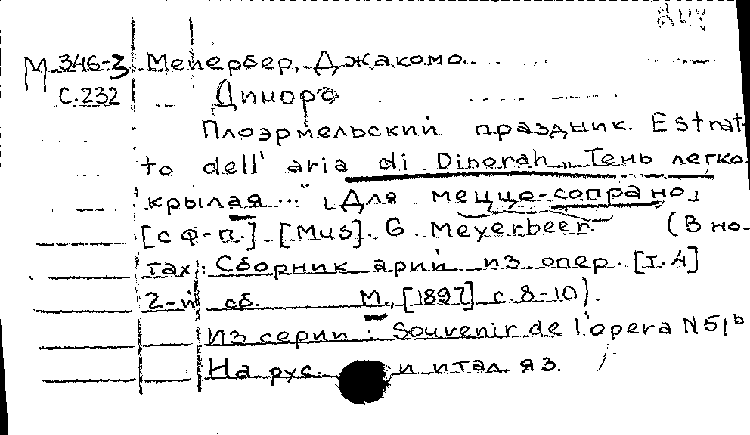 М 346-3 Мейербер, Джакомо.
С.232 Динора
Плоэрмельский праздник. Estrat-
to dell' aria di Dinorah „Тень легко-
крылая..." [Для меццо-сопрано]
[с ф-п.] [Mus]. G. Meyerbeer. (В но-
тах: Сборник арий из опер. [т.4]
2-й сб. М., [1897] с. 8-10).
Из серии: Souvenir de l'opera N 51b
На рус. и итал. яз.